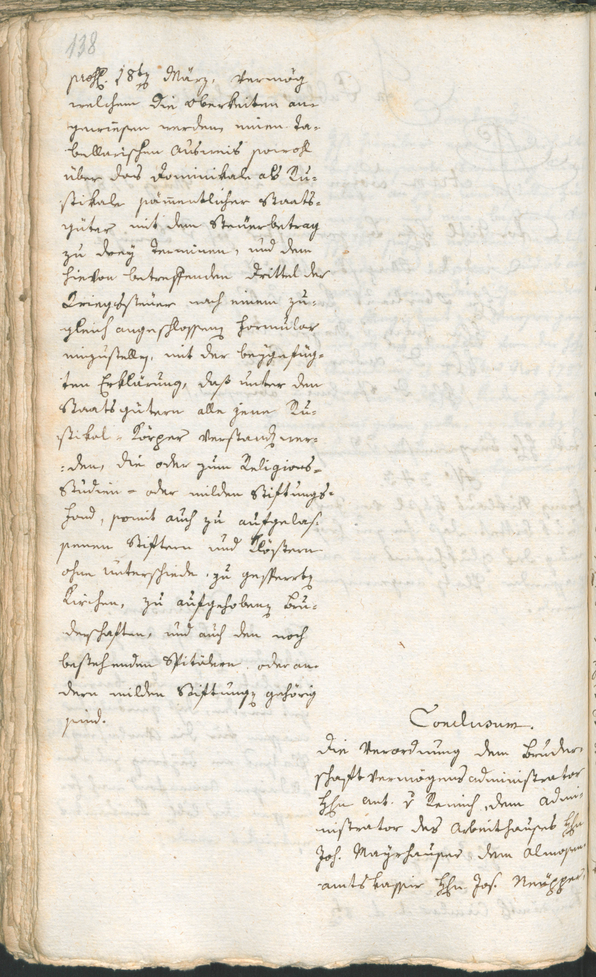 138
prähs. 18ten März, vermög
welchem die Oberkeiten an-
gewiesen werden, einen ta-
bellarischen Ausweis sowohl
über das Dominikale als Ru-
stikale sämmentlicher Staats-
güter mit dem Steuerbetrag
zu drey Terminen, und dem
hievon betreffenden Drittel der
Kriegssteuer nach einem zu-
gleich angeschlossenen Formular
einzustellen, mit der beygefüg-
ten Erklärung, daß unter den
Staatsgütern alle jene Ru-
stikal-Körper verstanden wer-
:den, die oder zum Religions-
Studien- oder milden Stiftungs-
fond, somit auch zu aufgelas-
senen Stiftern und Klöstern
ohne Unterschiede, zu gesperrten
Kirchen, zu aufgehobenen Bru-
derschaften, und auch den noch
bestehenden Spitälern, oder an-
dern milden Stiftungen gehörig
sind.
Conclusum.
Die Verordnung dem Bruder-
schaft Vermögensadministrator
Hhn Ant. v Remich, dem Admi-
nistrator des Arbeithauses Hhn
Joh. Mayrhauser dem Almosen-
amtskassir Hhn Jos.